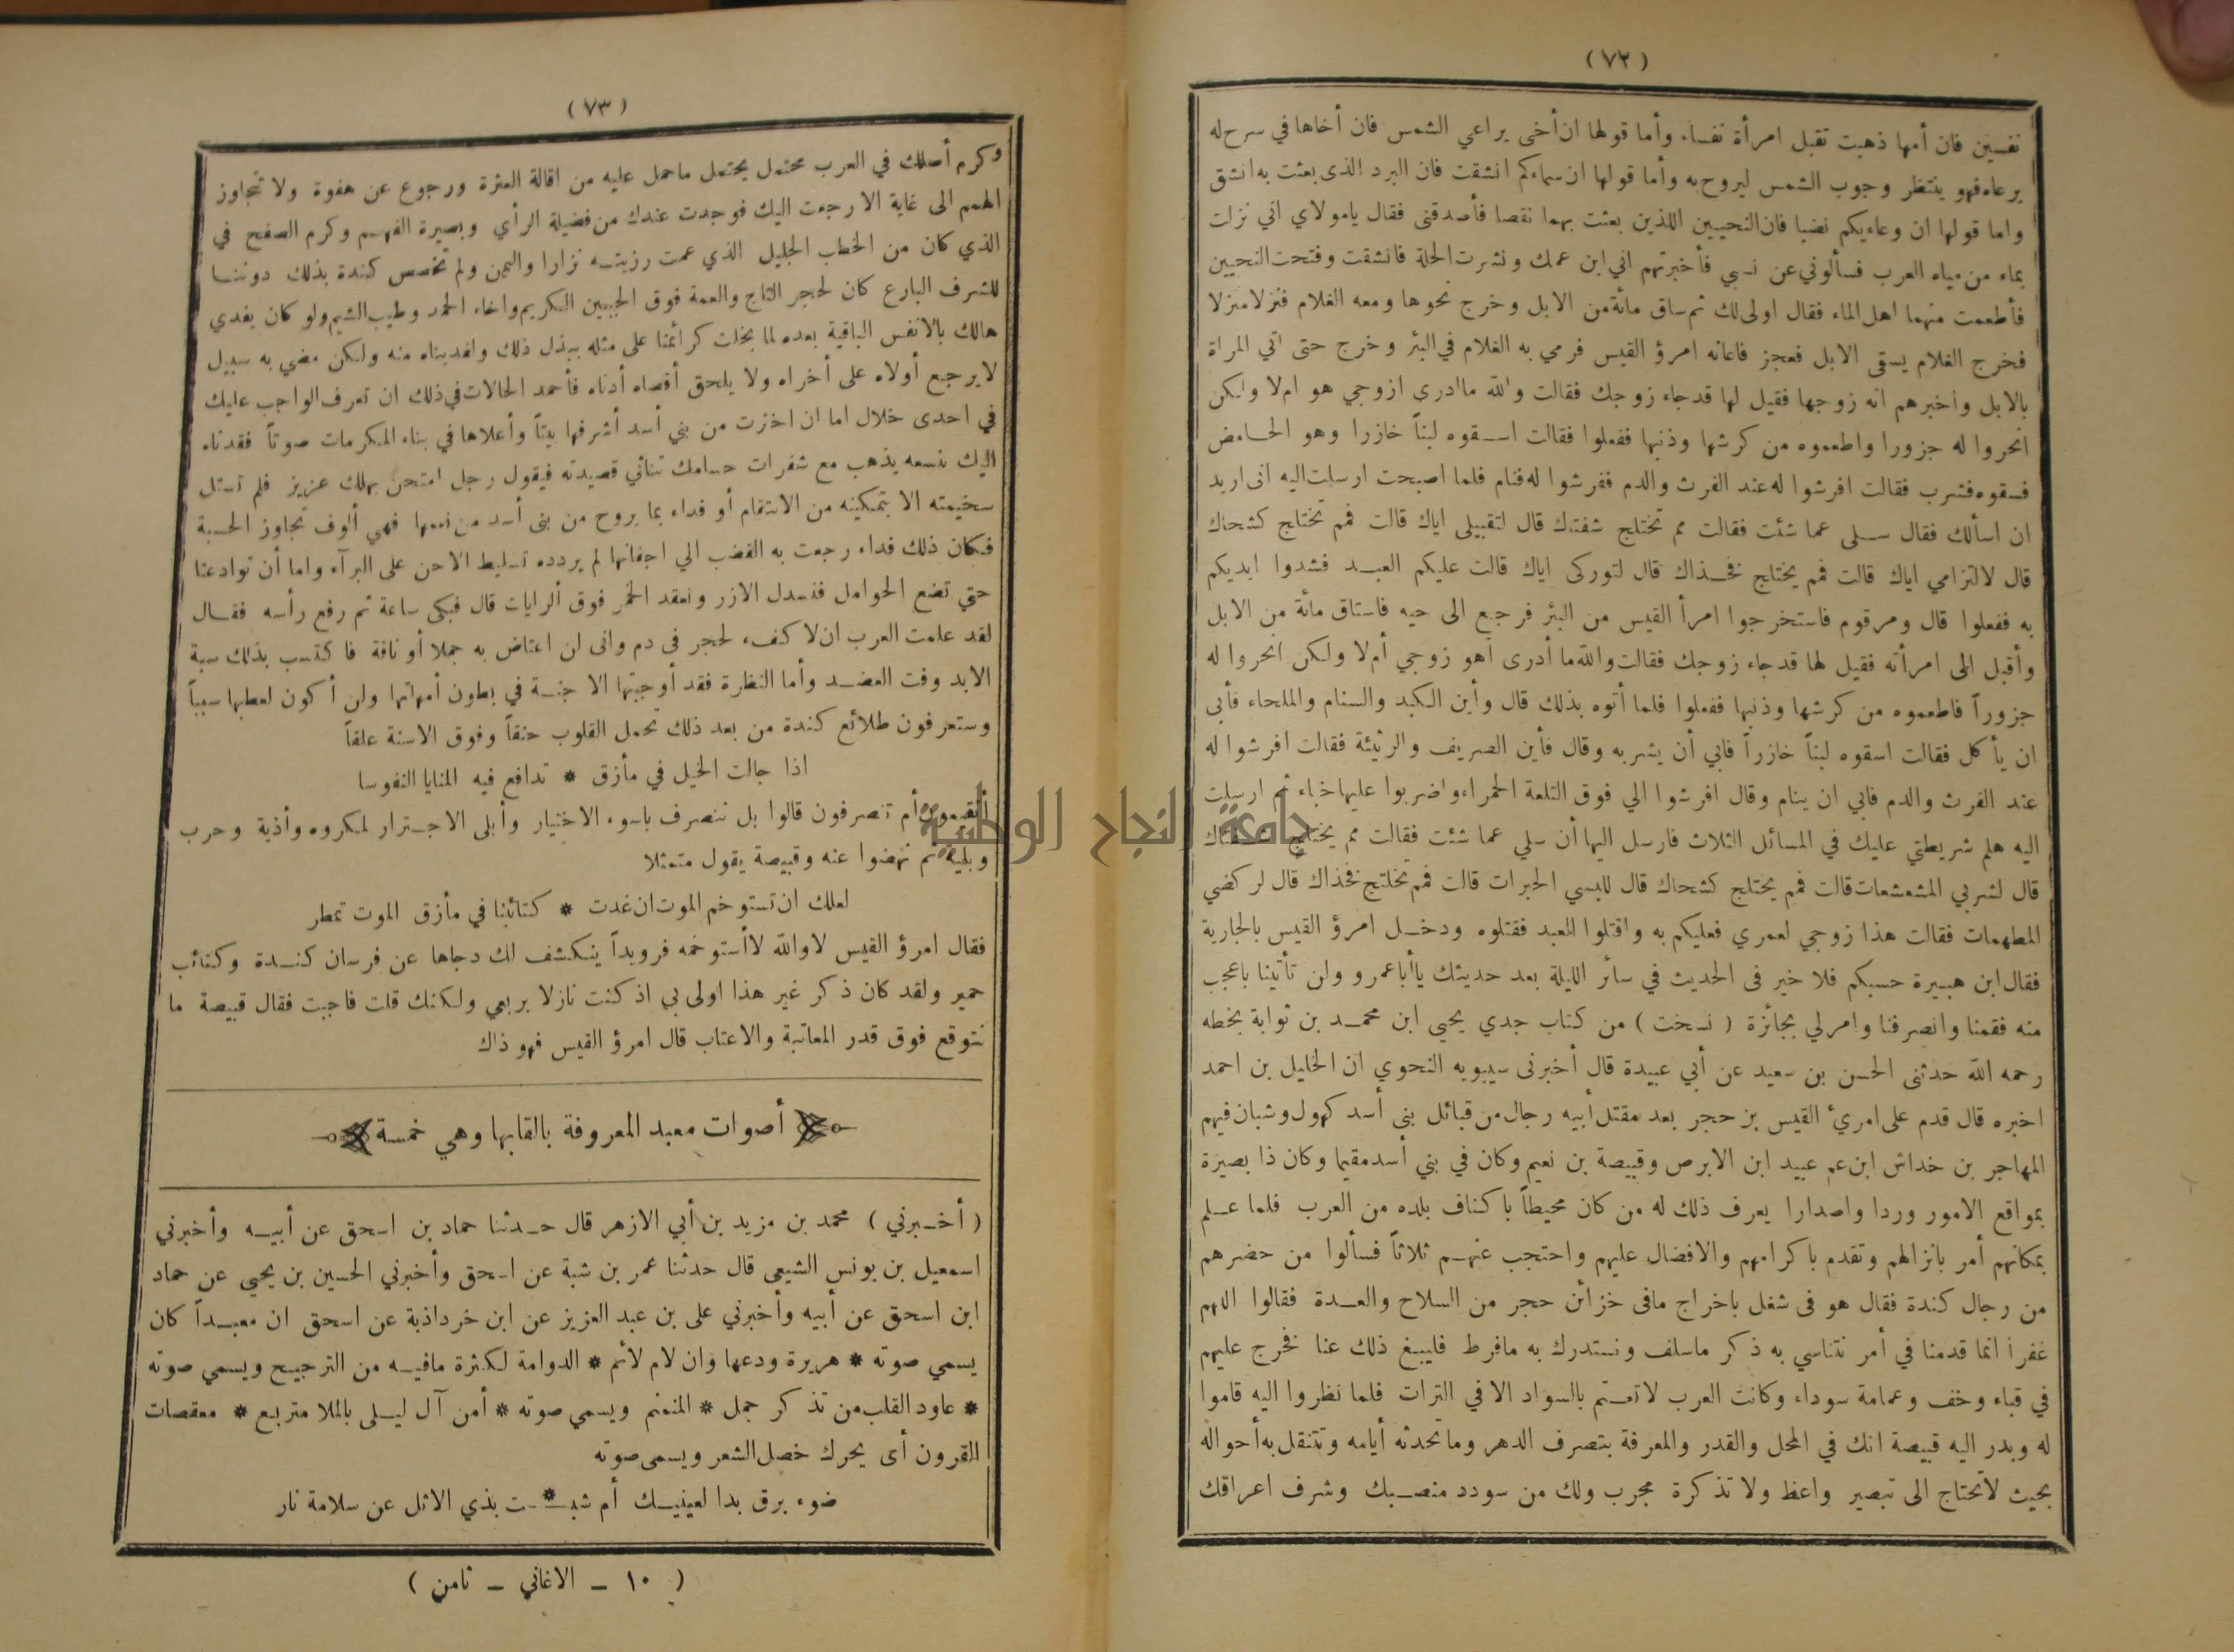 (٧٢)
نفسين فان أمها ذهبت تقبل امرأة نفساء وأما قولها ان أخى يراعي الشمس فان أخاها في سرح له
يرعاه فهو ينتظر وجوب الشمس ليروح به وأما قولها ان سماءكم انشقت فان البرد الذى بعثت به انشق
واما قولها ان وعاءيكم نضبا فان النحيين اللذين بعثت بهما نقصا فأصدقنى فقال يامولاي اني نزلت
بماء من مياه العرب فسألوني عن نسبي فأخبرتهم اني ابن عمك ونشرت الحلة فانشقت وفتحت النحيين
فأطعمت منهما اهل الماء فقال اولى لك ثم ساق مائة من الابل وخرج نحوها ومعه الغلام فنزلا منزلا
فخرج الغلام يسقى الابل فعجز فاعانه امرؤ القيس فرمي به الغلام في البئر وخرج حتى اتي المراة
بالابل واخبرهم انه زوجها فقيل لها قد جاء زوجك فقالت والله ماادري ازوجي هو ام لا ولكن
انحروا له جزورا واطعموه من كرشها وذنبها ففعلوا فقالت اسقوه لبناً خازرا وهو الحامض
فسقوه فشرب فقالت افرشوا له عند الفرث والدم ففرشوا له فنام فلما اصبحت ارسلت اليه انى اريد
ان اسألك فقال سلى عما شئت فقالت مم تختلج شفتاك قال لتقبيلى اياك قالت فمم تختلج كشحاك
قال لالتزامي اياك قالت فمم يختلج فخذاك قال لتوركى اياك قالت عليكم العبد فشدوا ايديكم
به ففعلوا قال ومر قوم فاستخرجوا امرأ القيس من البئر فرجع الى حيه فاستاق مائة من الابل
وأقبل الى امرأته فقيل لها قد جاء زوجك فقالت والله ما أدرى أهو زوجي أم لا ولكن انحروا له
جزوراً فاطعموه من كرشها وذنبها ففعلوا فلما أتوه بذلك قال وأين الكبد والسنام والملحاء فأبى
ان يأكل فقالت اسقوه لبناً خازراً فابي أن يشربه وقال فأين الصريف والرثيئة فقالت افرشوا له
عند الفرث والدم فابي ان ينام وقال افرشوا الي فوق التلعة الحمراء واضربوا عليها خباء ثم ارسلت
اليه هلم شريطتي عليك في المسائل الثلاث فارسل اليها أن سلي عما شئت فقالت مم يختلج شفتاك
قال لشربي المشعشعات قالت فمم يختلج كشحاك قال للبسي الحبرات قالت فمم تختلج فخذاك قال لركضي
المطهمات فقالت هذا زوجي لعمري فعليكم به واقتلوا العبد فقتلوه ودخل امرؤ القيس بالجارية
فقال ابن هبيرة حسبكم فلا خير فى الحديث في سائر الليلة بعد حديثك ياأبا عمرو ولن تأتينا باعجب
منه فقمنا وانصرفنا وامر لي بجائزة ( نسخت ) من كتاب جدي يحيى ابن محمد بن ثوابة بخطه
رحمه الله حدثنى الحسن بن سعيد عن أبي عبيدة قال أخبرنى سيبويه النحوي ان الخليل بن احمد
اخبره قال قدم على امرئ القيس بن حجر بعد مقتل أبيه رجال من قبائل بنى أسد كهول وشبان فيهم
المهاجر بن خداش ابن عم عبيد ابن الابرص وقبيصة بن نعيم وكان في بني أسد مقيما وكان ذا بصيرة
بمواقع الامور وردا واصدارا يعرف ذلك له من كان محيطاً باكناف بلده من العرب فلما علم
بمكانهم أمر بانزالهم وتقدم باكرامهم والافضال عليهم واحتجب عنهم ثلاثاً فسألوا من حضرهم
من رجال كندة فقال هو فى شغل باخراج مافى خزائن حجر من السلاح والعدة فقالوا اللهم
غفراً انما قدمنا في أمر نتناسي به ذكر ماسلف ونستدرك به مافرط فليبلغ ذلك عنا فخرج عليهم
في قباء وخف وعمامة سوداء وكانت العرب لا تعتم بالسواد الا في الترات فلما نظروا اليه قاموا
له وبدر اليه قبيصة انك في المحل والقدر والمعرفة بتصرف الدهر وما تحدثه أيامه وتتنقل به أحواله
بحيث لا تحتاج الى تبصير واعظ ولا تذكرة مجرب ولك من سودد منصبك وشرف اعراقك
(٧٣)
وكرم أصلك في العرب محتمل يحتمل ماحمل عليه من اقالة العثرة ورجوع عن هفوة ولا تتجاوز
الهمم الى غاية الا رجعت اليك فوجدت عندك من فضيلة الرأي وبصيرة الفهم وكرم الصفح في
الذي كان من الخطب الجليل الذي عمت رزيته نزارا واليمن ولم تخصص كندة بذلك دوننا
للشرف البارع كان لحجر التاج والعمة فوق الجبين الكريم واخاء الحمد وطيب الشيم ولو كان يفدي
هالك بالانفس الباقية بعده لما بخلت كرائمنا على مثله ببذل ذلك ولفديناه منه ولكن مضي به سبيل
لا يرجع أولاه على أخراه ولا يلحق أقصاه أدناه فأحمد الحالات في ذلك ان تعرف الواجب عليك
في احدى خلال اما ان اخترت من بني أسد أشرفها بيتاً وأعلاها في بناء المكرمات صوتاً فقدناه
اليك بنسعه يذهب مع شفرات حسامك تنائي قصيدته فيقول رجل امتحن بهلك عزيز فلم تستل
سخيمته الا بتمكينه من الانتقام أو فداء بما يروح من بنى أسد من نعمها فهي ألوف تجاوز الحسبة
فكان ذلك فداء رجعت به القضب الي اجفانها لم يردده تسليط الاحن على البرآء واما أن توادعنا
حتي تضع الحوامل فنسدل الازر ونعقد الخمر فوق الرايات قال فبكى ساعة ثم رفع رأسه فقال
لقد علمت العرب ان لا كفء لحجر فى دم وانى لن اعتاض به جملا أو ناقة فاكتسب بذلك سبة
الابد وفت العضد وأما النظرة فقد أوجبتها الاجنة في بطون أمهاتها ولن أكون لعطبها سبباً
وستعرفون طلائع كندة من بعد ذلك تحمل القلوب حنقاً وفوق الاسنة علقاً
اذا جالت الخيل في مأزق * تدافع فيه المنايا النفوسا
أتقيمون أم تنصرفون قالوا بل ننصرف باسوء الاختيار وأبلى الاجترار لمكروه وأذية وحرب
وبلية ثم نهضوا عنه وقبيصة يقول متمثلا
لعلك ان تستوخم الموت ان غدت * كتائبنا في مأزق الموت تمطر
فقال امرؤ القيس لا والله لا أستوخمه فرويداً ينكشف لك دجاها عن فرسان كندة وكتائب
حمير ولقد كان ذكر غير هذا اولى بي اذ كنت نازلا بربعي ولكنك قلت فاجبت فقال قبيصة ما
نتوقع فوق قدر المعاتبة والاعتاب قال امرؤ القيس فهو ذاك
أصوات معبد المعروفة بالقابها وهي خمسة
( أخبرني ) محمد بن مزيد بن أبي الازهر قال حدثنا حماد بن اسحق عن أبيه وأخبرني
اسمعيل بن يونس الشيعى قال حدثنا عمر بن شبة عن اسحق وأخبرني الحسين بن يحيي عن حماد
ابن اسحق عن أبيه وأخبرني على بن عبد العزيز عن ابن خرداذبة عن اسحق ان معبداً كان
يسمي صوته * هريرة ودعها وان لام لائم * الدوامة لكثرة مافيه من الترجيح ويسمي صوته
* عاود القلب من تذكر جمل * المنمنم ويسمي صوته * أمن آل ليلى بالملا متربع * معقصات
القرون أى يحرك خصل الشعر ويسمى صوته
ضوء برق بدا لعينيك أم شبـ * ـت بذي الاثل عن سلامة نار
( ١٠ ـ الاغاني ـ ثامن )
جامعة النجاح الوطنية